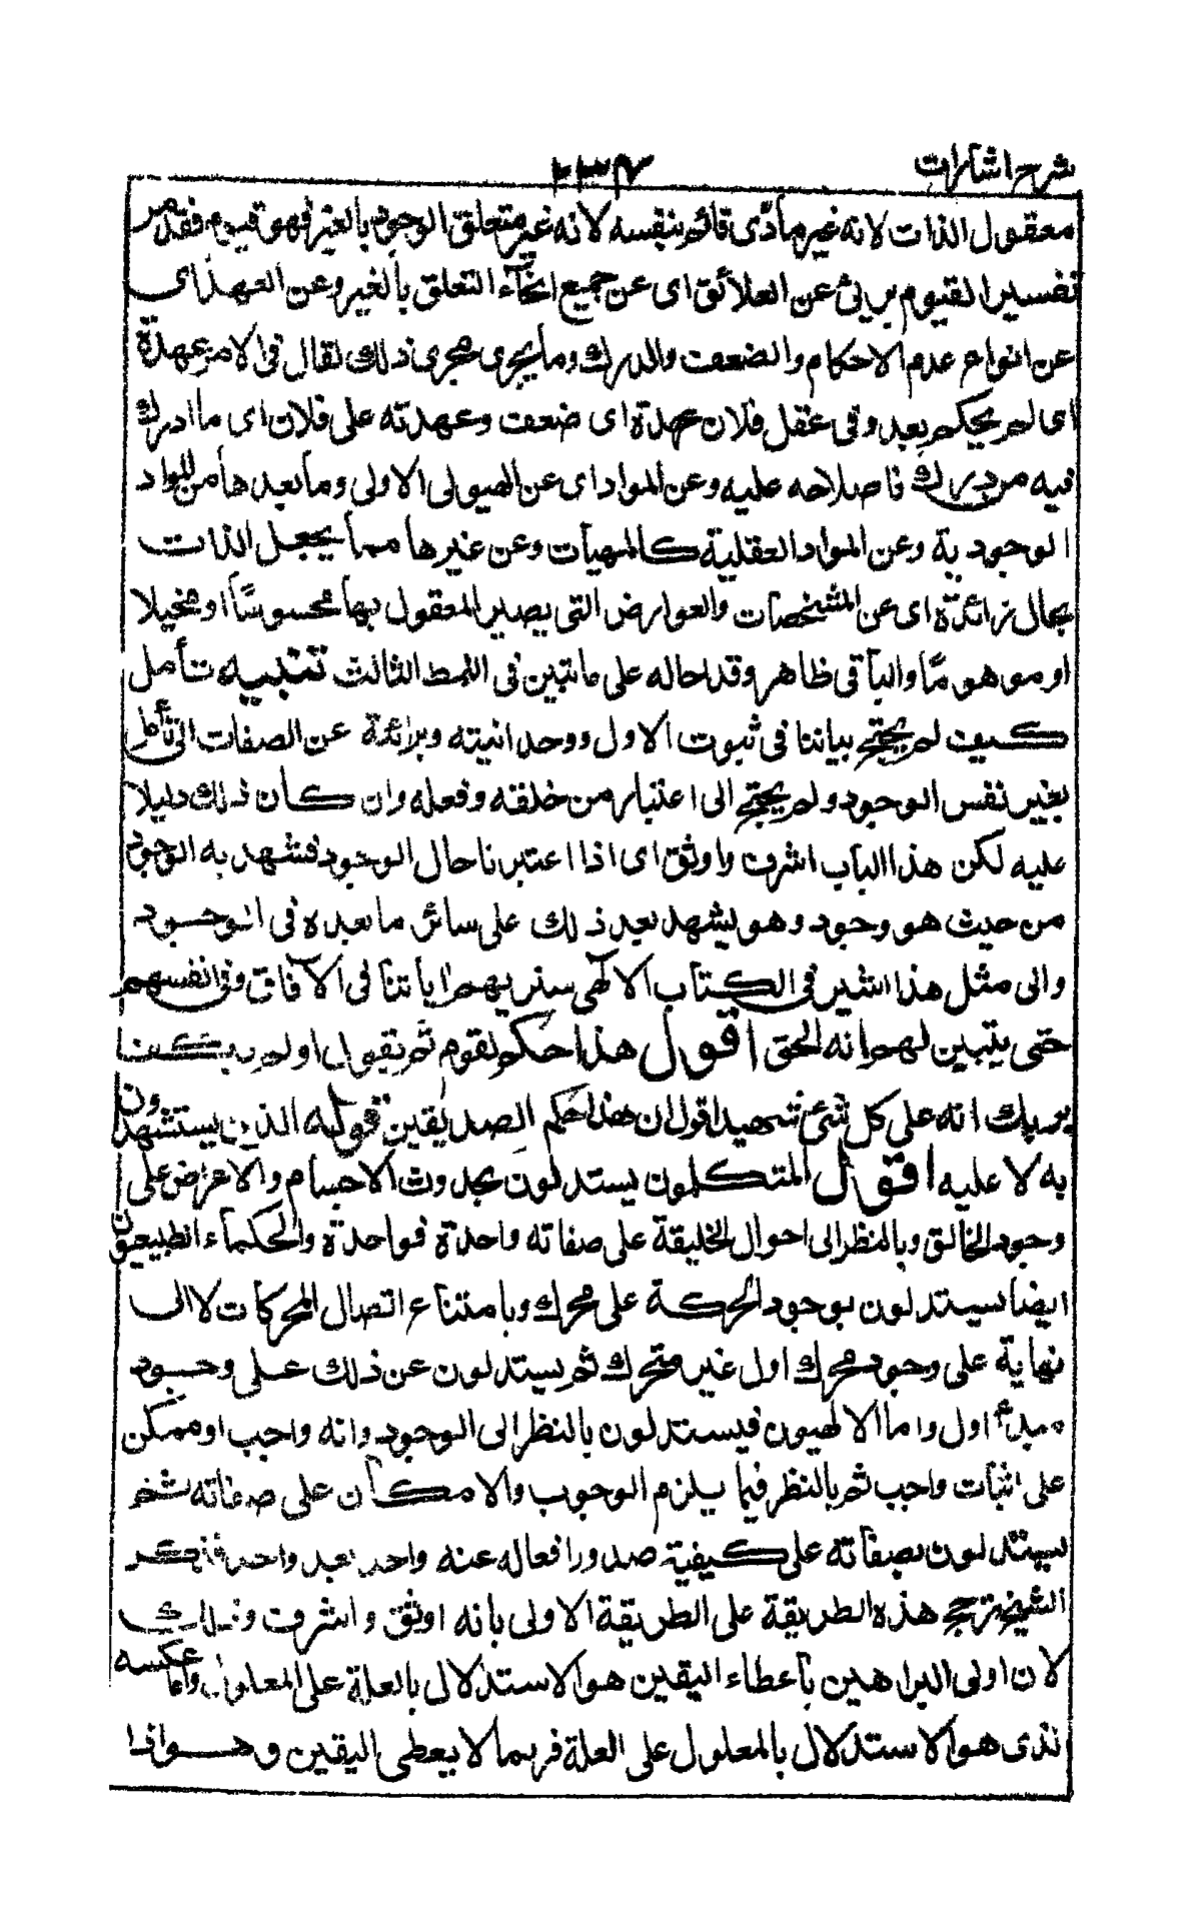 شرح اشارات
معقول الذات لانه غير مادّى قائم بنفسه لانه غير متعلق الوجود بالغير فهو قيوم فقد مر
تفسير القيوم برئ عن العلائق اى عن جميع انحآء التعلق بالغير وعن العهد اى
عن انواع عدم الاحكام والضعف والدرك وما يجرى مجرى ذلك يقال فى الامر عهدة
اى لم يحكم بعد وفى عقل فلان عهدة اى ضعف وعهدته على فلان اى ما ادرك
فيه من درك فاصلاحه عليه وعن المواد اى عن الهيولى الاولى وما بعدها من المواد
الوجودية وعن المواد العقلية كالمهيات وعن غيرها مما يجعل الذات
بحال زائدة اى عن المشخصات والعوارض التى يصير المعقول بها محسوسًا او مخيلا
او موهومًا والباقى ظاهر وقد احاله على ما تبين فى النمط الثالث تنبيه تأمل
كيف لم يحتج بياننا فى ثبوت الاول ووحدانيته وبرائة عن الصفات الى تأمل
بغير نفس الوجود ولم يحتج الى اعتبار من خلقه وفعله وان كان ذلك دليلا
عليه لكن هذا الباب اشرف واوثق اى اذا اعتبرنا حال الوجود فشهد به الوجود
من حيث هو وجود وهو يشهد بعد ذلك على سائر ما بعده فى الوجود
والى مثل هذا اشير فى الكتاب الالهى سنريهم اياتنا فى الآفاق وفى انفسهم
حتى يتبين لهم انه الحق اقول هذا حكم لقوم ثم يقول اولم يكف
بربك انه على كل شئ شهيد اقول ان هذا حكم الصديقين قوله الذين يستشهدون
به لا عليه اقول المتكلمون يستدلون بحدوث الاجسام والاعراض على
وجود الخالق وبالنظر الى احوال الخليقة على صفاته واحدة فواحدة والحكماء الطبيعيون
ايضا يستدلون بوجود الحركة على محرك وبامتناع اتصال المحركات لا الى
نهاية على وجود محرك اول غير متحرك ثم يستدلون عن ذلك على وجود
مبدء اول واما الالهيون فيستدلون بالنظر الى الوجود وانه واجب او ممكن
على اثبات واجب ثم بالنظر فيما يلزم الوجوب والامكان على صفاته ثم
يستدلون بصفاته على كيفية صدور افعاله عنه واحد بعد واحد فذكر
الشيخ ترجيح هذه الطريقة على الطريقة الاولى بانه اوثق واشرف وذلك
لان اولى البراهين باعطاء اليقين هو الاستدلال بالعلة على المعلول واما عكسه
الذى هو الاستدلال بالمعلول على العلة فربما لا يعطى اليقين وهو اذا